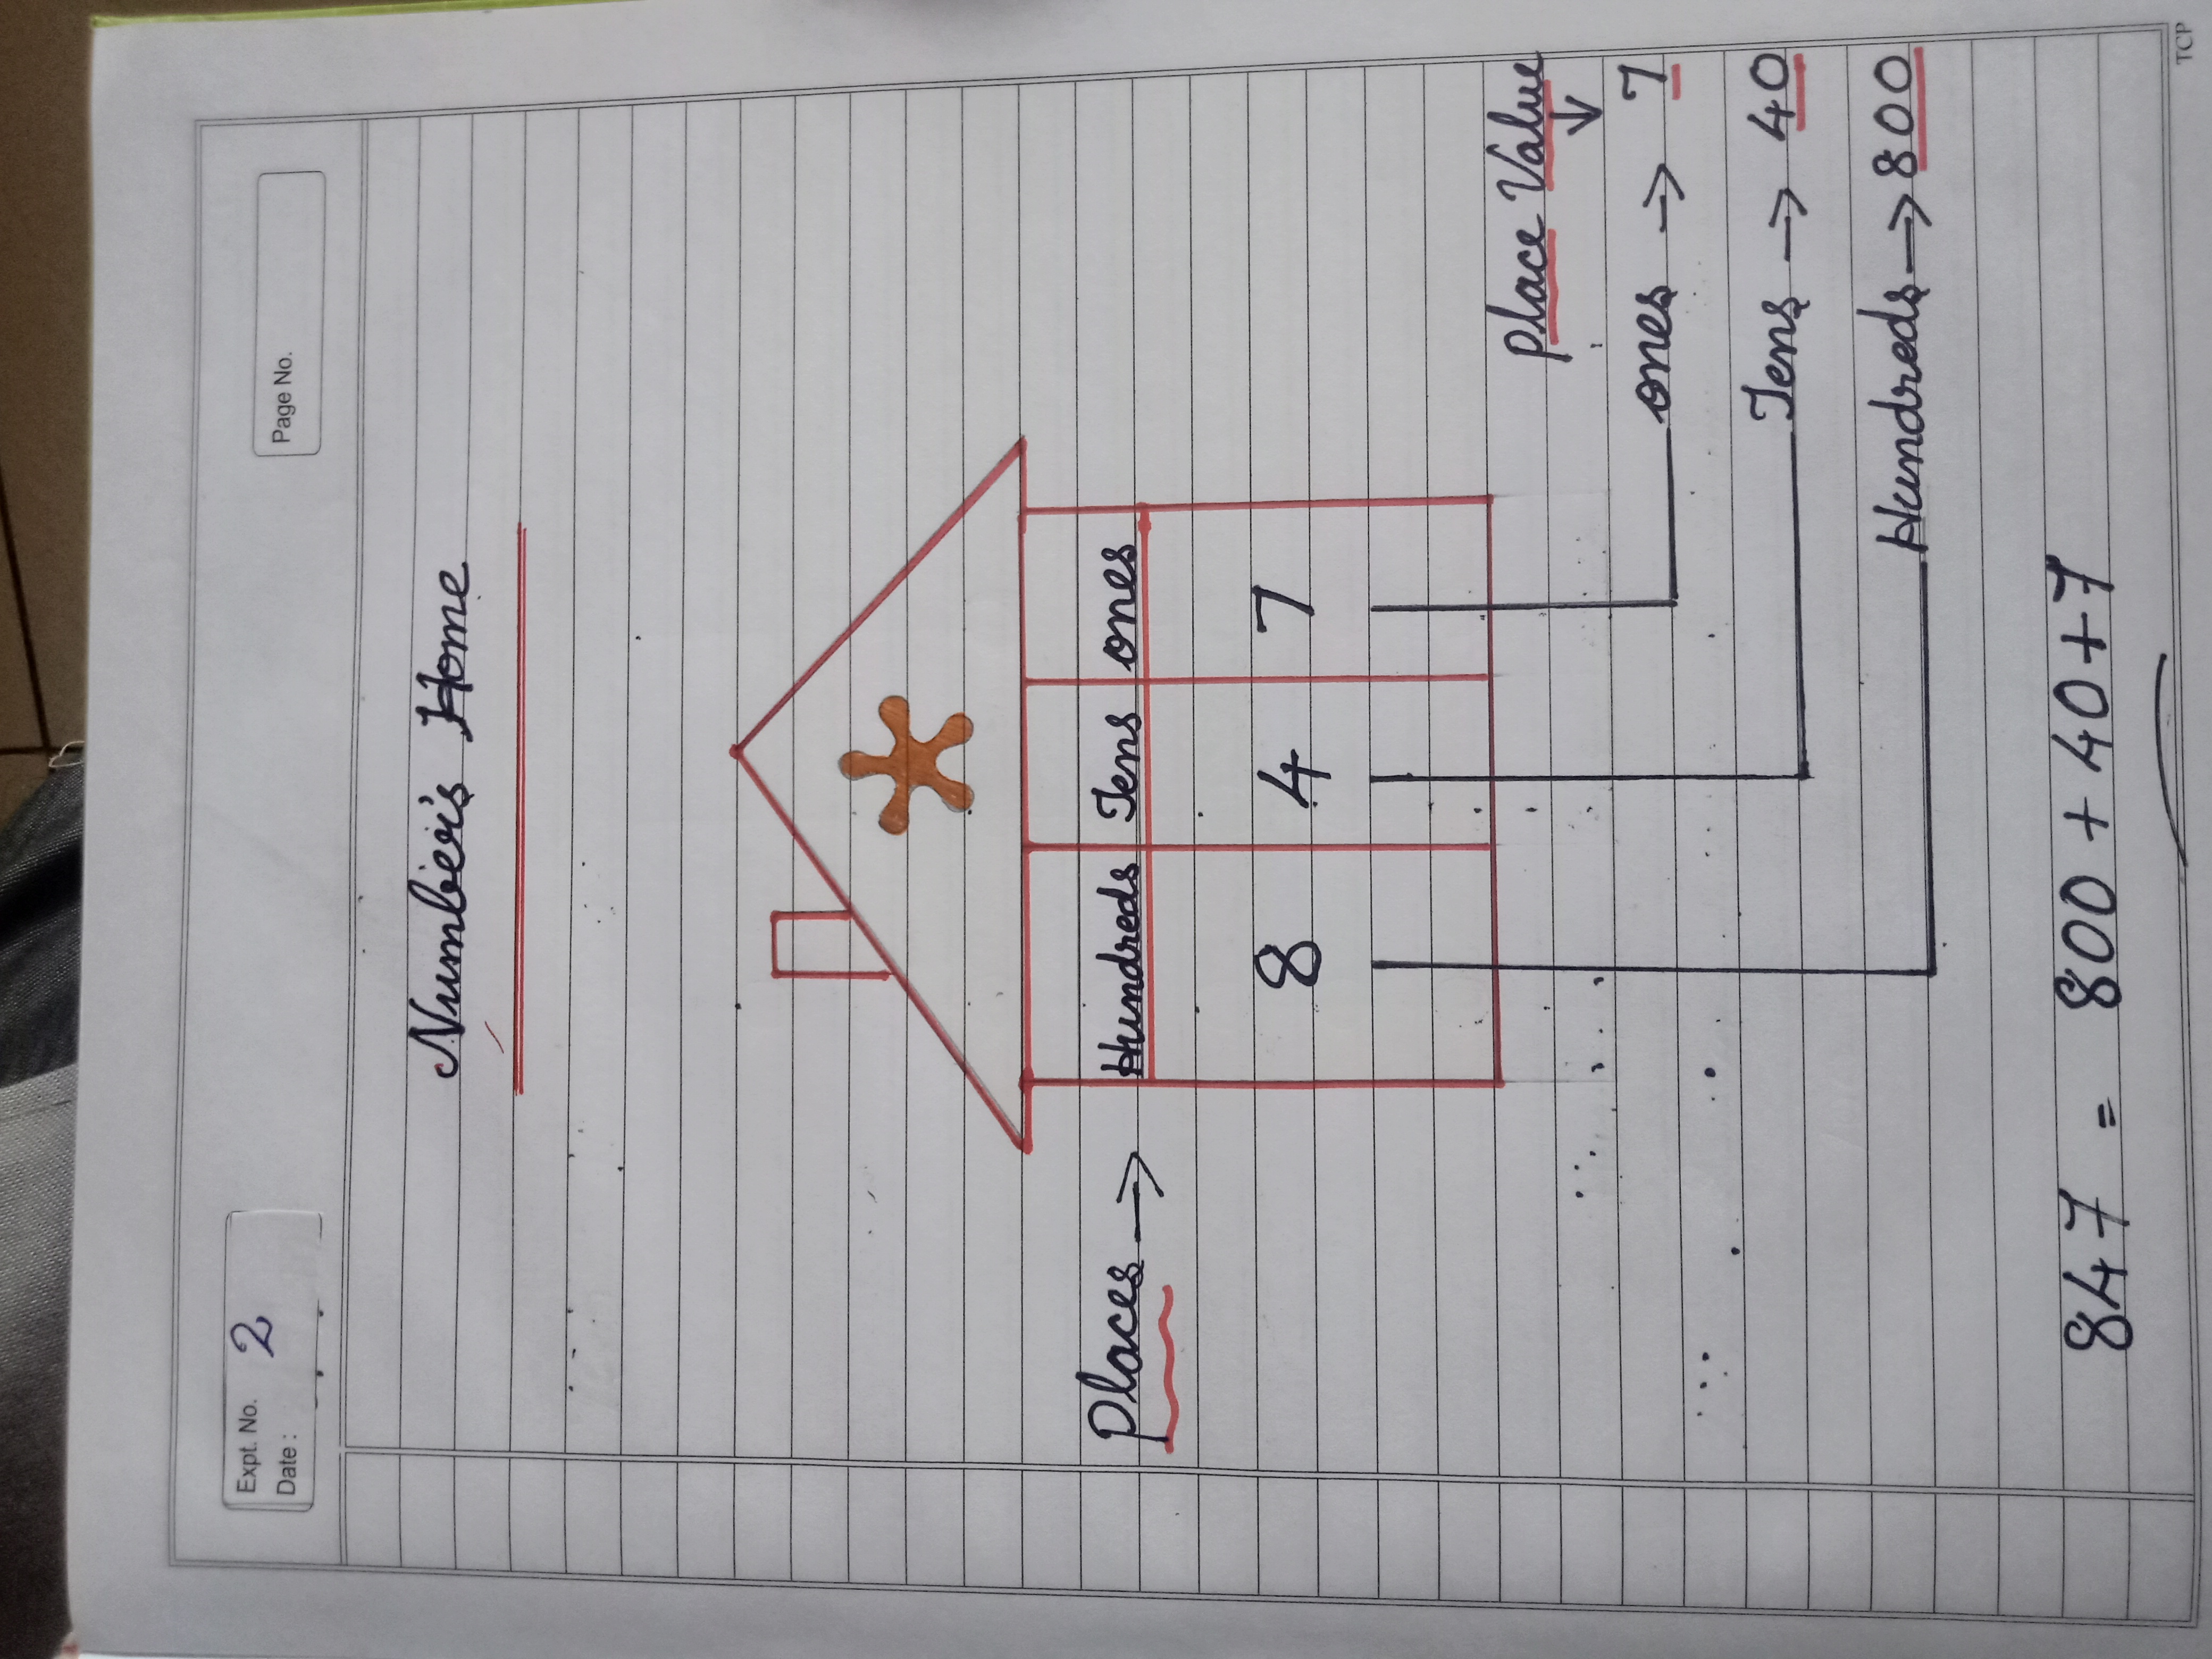 Expt. No. 2
Date :
Page No.
Number's Home
Places → Hundreds Tens ones
8 4 7
place Value
↓
ones → 7
Tens → 40
Hundreds → 800
847 = 800 + 40 + 7
TCP